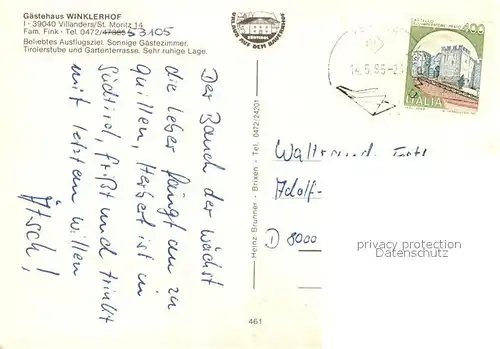 Gästehaus WINKLERHOF
I - 39040 Villanders/St. Moritz 14
Fam. Fink - Tel. 0472/47385 53105
Beliebtes Ausflugsziel. Sonnige Gästezimmer.
Tirolerstube und Gartenterrasse. Sehr ruhige Lage.
URLAUB AUF DEM BAUERNHOF
SÜDTIROL
14.5.85-2
400
ITALIA
Der Bauch der wächst
die Leber fängt an zu
quillen, Herbert ist in
Südtirol, frißt und trinkt
mit letztem willen
Ätsch!
Heinz Brunner - Brixen - Tel. 0472/24201
Waltraud
Adolf-
D 8000
privacy protection
Datenschutz
461